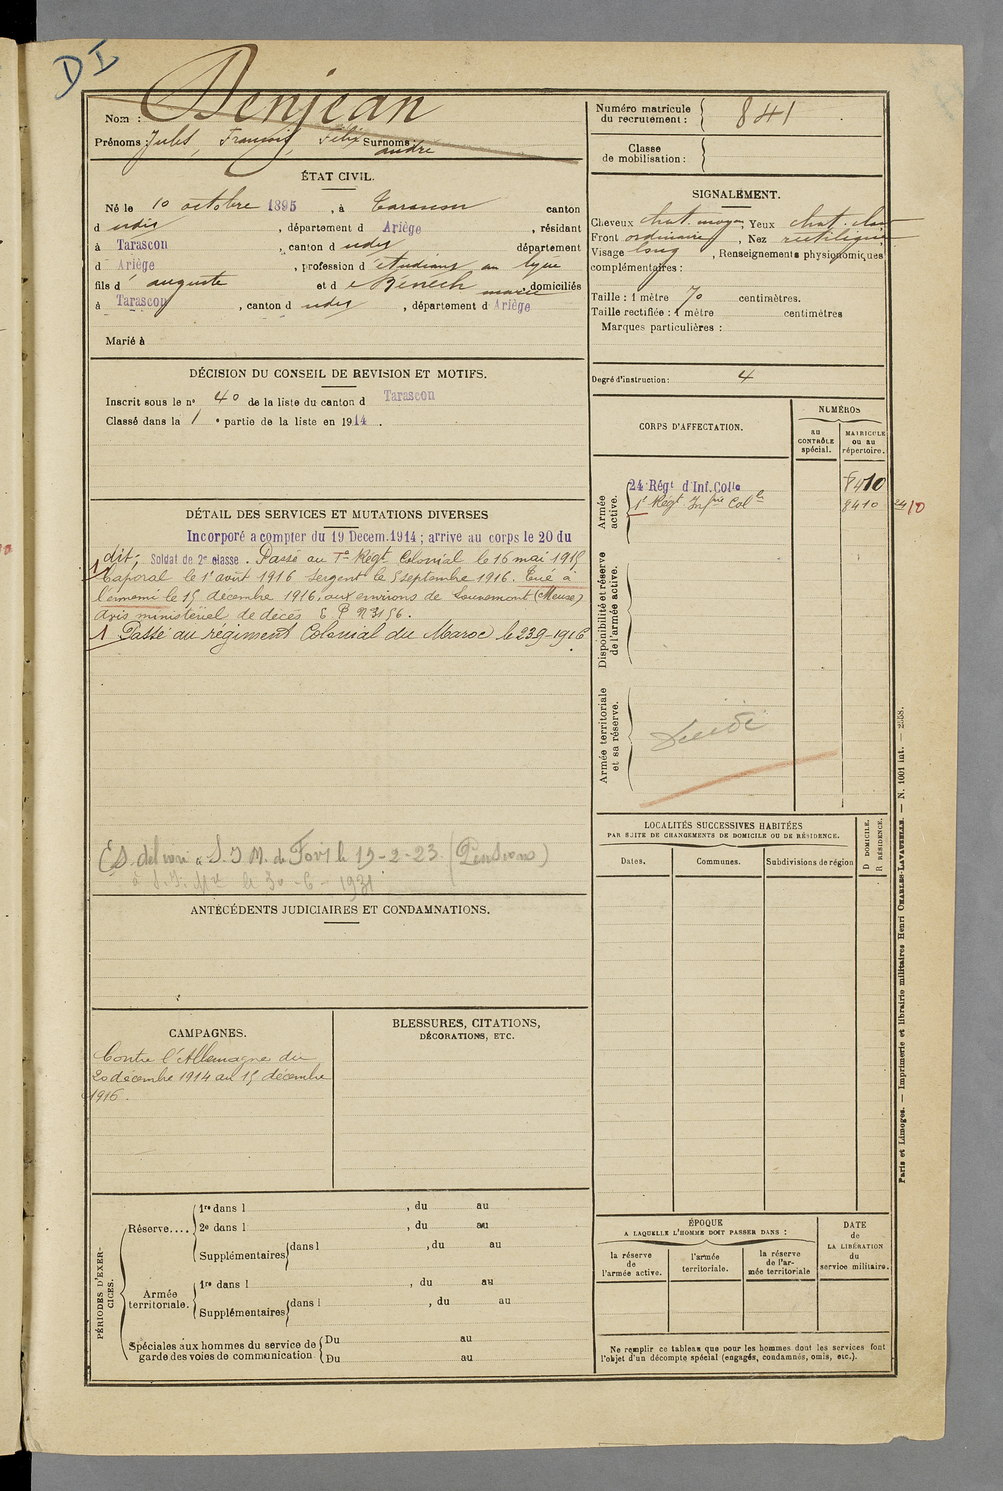 DI
Nom : Denjean
Prénoms : Jules, François, Félix Surnoms : andré
ÉTAT CIVIL.
Né le 10 octobre 1895, à Tarascon canton
d udit, département d Ariège, résidant
à Tarascon, canton d udit département
d Ariège, profession d étudiant au lycée
fils d auguste et d e Benech marie, domiciliés
à Tarascon, canton d udit, département d Ariège
Marié à
DÉCISION DU CONSEIL DE REVISION ET MOTIFS.
Inscrit sous le nº 40 de la liste du canton d Tarascon
Classé dans la 1e partie de la liste en 1914.
DÉTAIL DES SERVICES ET MUTATIONS DIVERSES
Incorporé a compter du 19 Décem. 1914 ; arrive au corps le 20 du
dit; Soldat de 2e classe. Passé au 1e Regt Colonial le 16 mai 1915
Caporal le 1er août 1916 Sergent le 5 septembre 1916. Tué à
l'ennemi le 15 décembre 1916, aux environs de Louvemont (Meuse)
Avis ministériel de décès
1 Passé au régiment Colonial du Maroc le 23-9-1916
(Es. délivré à S. I. M. de Foix le 19-2-23 (Pensions)
le 30-6-1931
ANTÉCÉDENTS JUDICIAIRES ET CONDAMNATIONS.
CAMPAGNES.
Contre l'Allemagne du
20 décembre 1914 au 15 décembre
1916.
BLESSURES, CITATIONS,
DÉCORATIONS, ETC.
PÉRIODES D'EXERCICES.
Réserve....
1re dans l , du au
2e dans l , du au
Supplémentaires dans l , du au
Armée territoriale.
1re dans l , du au
Supplémentaires dans l , du au
Spéciales aux hommes du service de
garde des voies de communication
Du au
Du au
Numéro matricule
du recrutement : 841
Classe
de mobilisation :
SIGNALEMENT.
Cheveux chat. moyen, Yeux chat. clair
Front ordinaire, Nez rectiligne
Visage long, Renseignements physionomiques
complémentaires :
Taille : 1 mètre 70 centimètres.
Taille rectifiée : 1 mètre centimètres
Marques particulières :
Degré d'instruction : 4
CORPS D'AFFECTATION.
NUMÉROS
au
CONTRÔLE
spécial.
MATRICULE
ou au
répertoire.
Armée
active.
24 Régt d'Inf. Colle 8410
1er Régt Infrie Colle 8410
Disponibilité et réserve
de l'armée active.
Armée territoriale
et sa réserve.
LOCALITÉS SUCCESSIVES HABITÉES
PAR SUITE DE CHANGEMENTS DE DOMICILE OU DE RÉSIDENCE.
D DOMICILE.
R RÉSIDENCE.
Dates. Communes. Subdivisions de région
ÉPOQUE
A LAQUELLE L'HOMME DOIT PASSER DANS :
la réserve
de
l'armée active.
l'armée
territoriale.
la réserve
de l'ar-
mée territoriale
DATE
de
LA LIBÉRATION
du
service militaire.
Ne remplir ce tableau que pour les hommes dont les services font
l'objet d'un décompte spécial (engagés, condamnés, omis, etc.).
Paris et Limoges. — Imprimerie et librairie militaires Henri CHARLES-LAVAUZELLE. — N. 1001 int. — 2558.